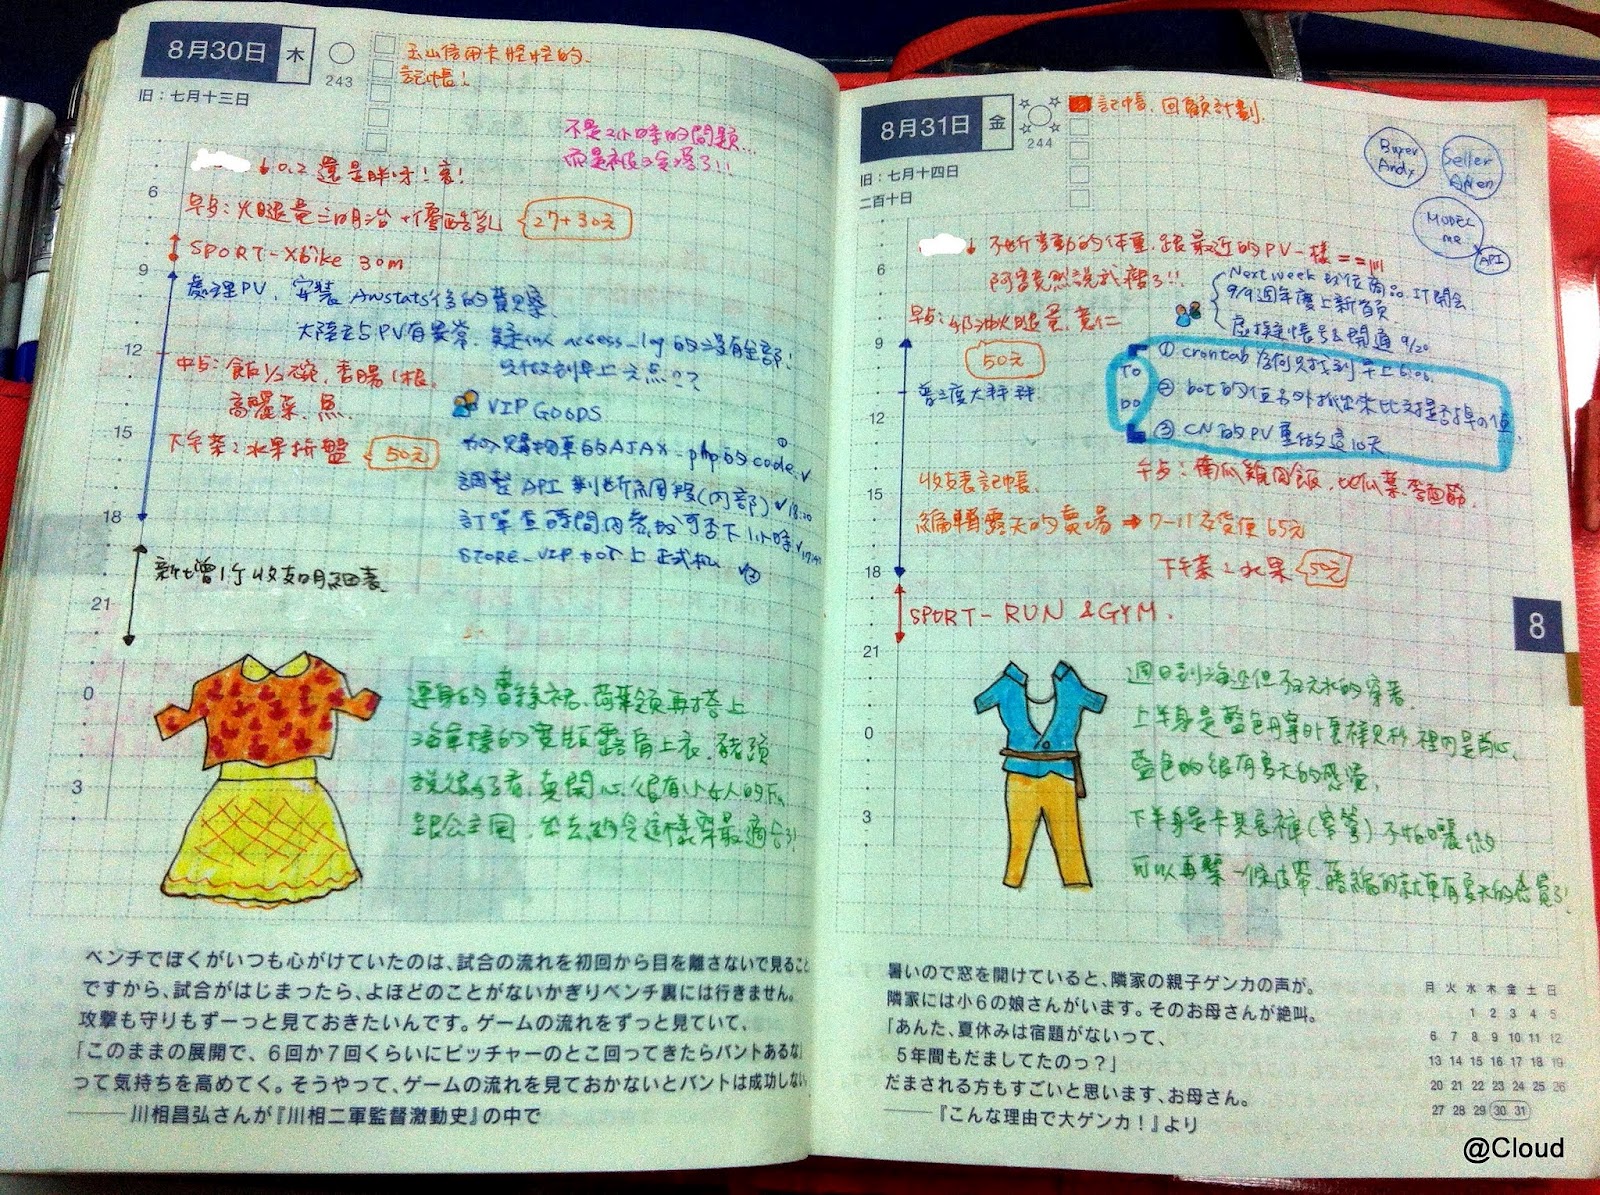 8月30日 木
243
旧：七月十三日
玉山信用卡怪怪的
記帳！
不是2小時的問題...
而是被
60.2 還是胖呀！哀！
早点：火腿蛋三明治+優酪乳 27+30元
SPORT-Xbike 30m
處理PV，安裝 Awstats後的
大陸 PV有異常，疑 access_log的沒有全部！
只做到早上 点??
中点：飯1/2碗，香腸1根，
高麗菜，魚
VIP GOODS
下午茶：水果拼盤 50元
加入購物車的AJAX-php的code ✓
調整 API 判斷 (內部) ✓18:20
訂單查時間 可否下1小時 ✓
STORE_VIP 上正式机 ✓
新增1个收支明細表
6
9
12
15
18
21
0
3
連身的 裙，荷葉領再搭上
露肩上衣，豬頭
說很好看，真開心，很有小女人的Fu
跟公主 ，出去約會這樣穿最適合了!
ベンチでぼくがいつも心がけていたのは、試合の流れを初回から目を離さないで見ること
ですから、試合がはじまったら、よほどのことがないかぎりベンチ裏には行きません。
攻撃も守りもずーっと見ておきたいんです。ゲームの流れをずっと見ていて、
「このままの展開で、6回か7回くらいにピッチャーのとこ回ってきたらバントあるな」
って気持ちを高めてく。そうやって、ゲームの流れを見ておかないとバントは成功しない
——川相昌弘さんが『川相二軍監督激動史』の中で
8月31日 金
244
旧：七月十四日
二百十日
記帳，回顧計劃
Buyer
Andy
Seller
Allen
MODEL
me
API
不斷 動的体重，跟最近的PV一樣 ==|||
阿 竟然說我 了!!
Next week 商品 IT開会
9/9週年慶上新首頁
虛擬帳号 開通 9/20
早点： 火腿蛋，薏仁
50元
TO
DO
① crontab 為何只找到早上6:06
② bot的值另外抓出來比較是否 的值
③ CN的PV重做這10天
普 度大拜拜
午点：南瓜雞肉飯，地瓜葉
收支表記帳
編輯露天的賣場 → 7-11 取貨便 65元
下午茶：水果 50元
SPORT- RUN & GYM.
6
9
12
15
18
21
0
3
8
週日到海边但不玩水的穿著
上半身是藍色 裡面是背心
藍色的很有夏天的感覺，
下半身是卡其長褲(窄管)不怕曬
可以再繫一條皮帶， 的就更有夏天的感覺了!
暑いので窓を開けていると、隣家の親子ゲンカの声が。
隣家には小6の娘さんがいます。そのお母さんが絶叫。
「あんた、夏休みは宿題がないって、
5年間もだましてたのっ？」
だまされる方もすごいと思います、お母さん。
——『こんな理由で大ゲンカ！』より
月 火 水 木 金 土 日
1 2 3 4 5
6 7 8 9 10 11 12
13 14 15 16 17 18 19
20 21 22 23 24 25 26
27 28 29 30 31
@Cloud